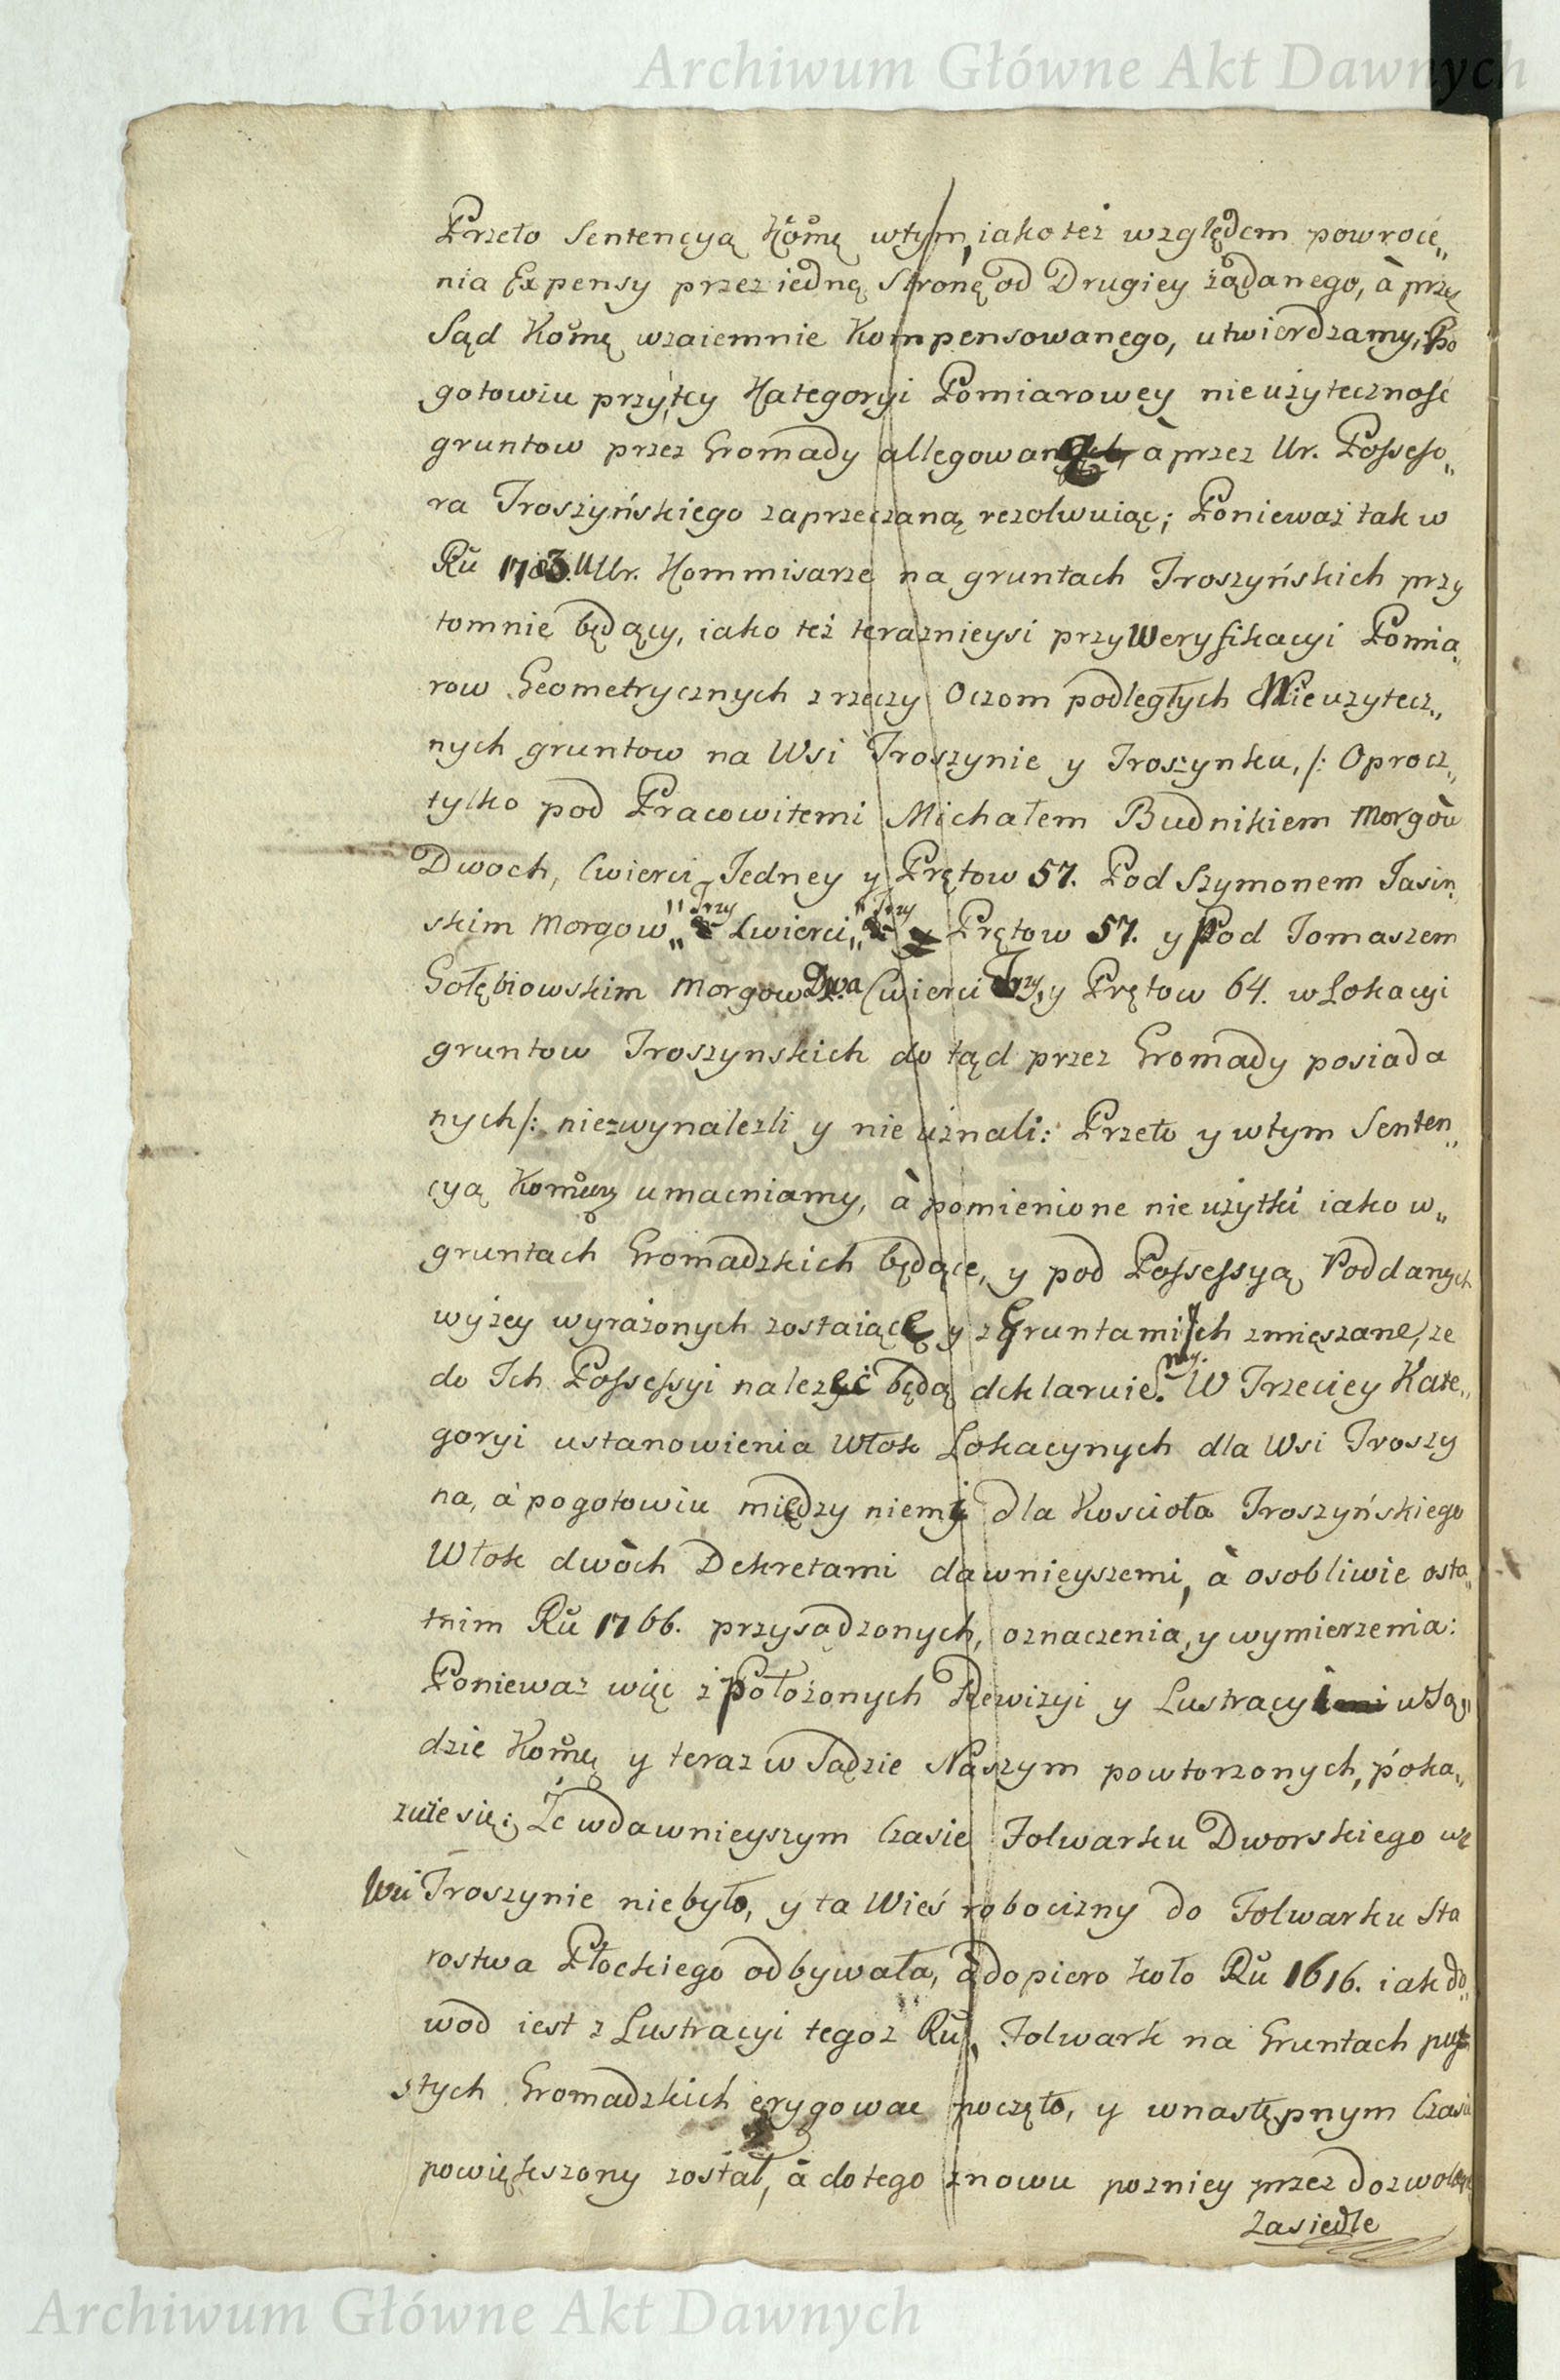 Archiwum Główne Akt Dawnych
Przeto Sentencyą Komą wtym, iako też względem powroce„
nia Expensy przez iedną Stronę od Drugiey żądanego, à przez
Sąd Komą wzaiemnie Kompensowanego, utwierdzamy; Po
gotowiu przytey Kategoryi Pomiarowey nieużyteczność
gruntow przez Gromady allegowaną à przez Ur. Possesso„
ra Troszyńskiego zaprzeczaną rezolwuiąc; Ponieważ tak w
Rũ 1783. UUr. Kommisarze na gruntach Troszyńskich przy
tomnie będący, iako też teraznieysi przy Weryfikacyi Pomia„
row Geometrycznych z rzeczy Oczom podległych Nieuzytecz„
nych gruntow na Wsi Troszynie y Troszynku, /: Oprocz„
tylko pod Pracowitemi Michałem Budnikiem Morgòw
Dwoch, Cwierci Jedney y Prętow 57. Pod Szymonem Jasin„
skim Morgow „Trzy Cwierci „Trzy y Prętow 57. y Pod Tomaszem
Gołębiowskim Morgow Dwa Cwierci Trzy, y Prętow 64. w Lokacyi
gruntow Troszynskich do tąd przez Gromady posiada
nych /: niezwynalezli y nie uznali: Przeto y wtym Senten„
cyą umacniamy, à pomienione nie użytki iako w„
gruntach Gromadzkich będące, y pod Possessyą Poddanych
wyżey wyrażonych zostaiące y z Gruntami Ich zmięszane, ze
do Ich Possessyi nalezeć będą deklaruiemy. W Trzeciey Kate„
goryi ustanowienia Włok Lokacynych dla Wsi Troszy
na, à pogotowiu między niemi dla Kościoła Troszyńskiego
Włok dwòch Dekretami dawnieyszemi, à osobliwie osta„
tnim Rũ 1766. przysądzonych, oznaczenia, y wymierzenia:
Ponieważ więc z Położonych Rewizyi y Lustracyi w Są„
dzie Komą y teraz w Sądzie Naszym powtorzonych, poka„
zuie się; Że wdawnieyszym Czasie Folwarku Dworskiego we
Wsi Troszynie niebyło, y ta Wieś robocizny do Folwarku Sta
rostwa Płockiego odbywała, à dopiero koło Rũ 1616. iak do„
wod iest z Lustracyi tegoz Rũ, Folwark na Gruntach pu„
stych Gromadzkich erygować poczęto, y wnastępnym Czasie
powiększony został, à do tego znowu pozniey przez dozwolone
Zasiedle
Archiwum Główne Akt Dawnych